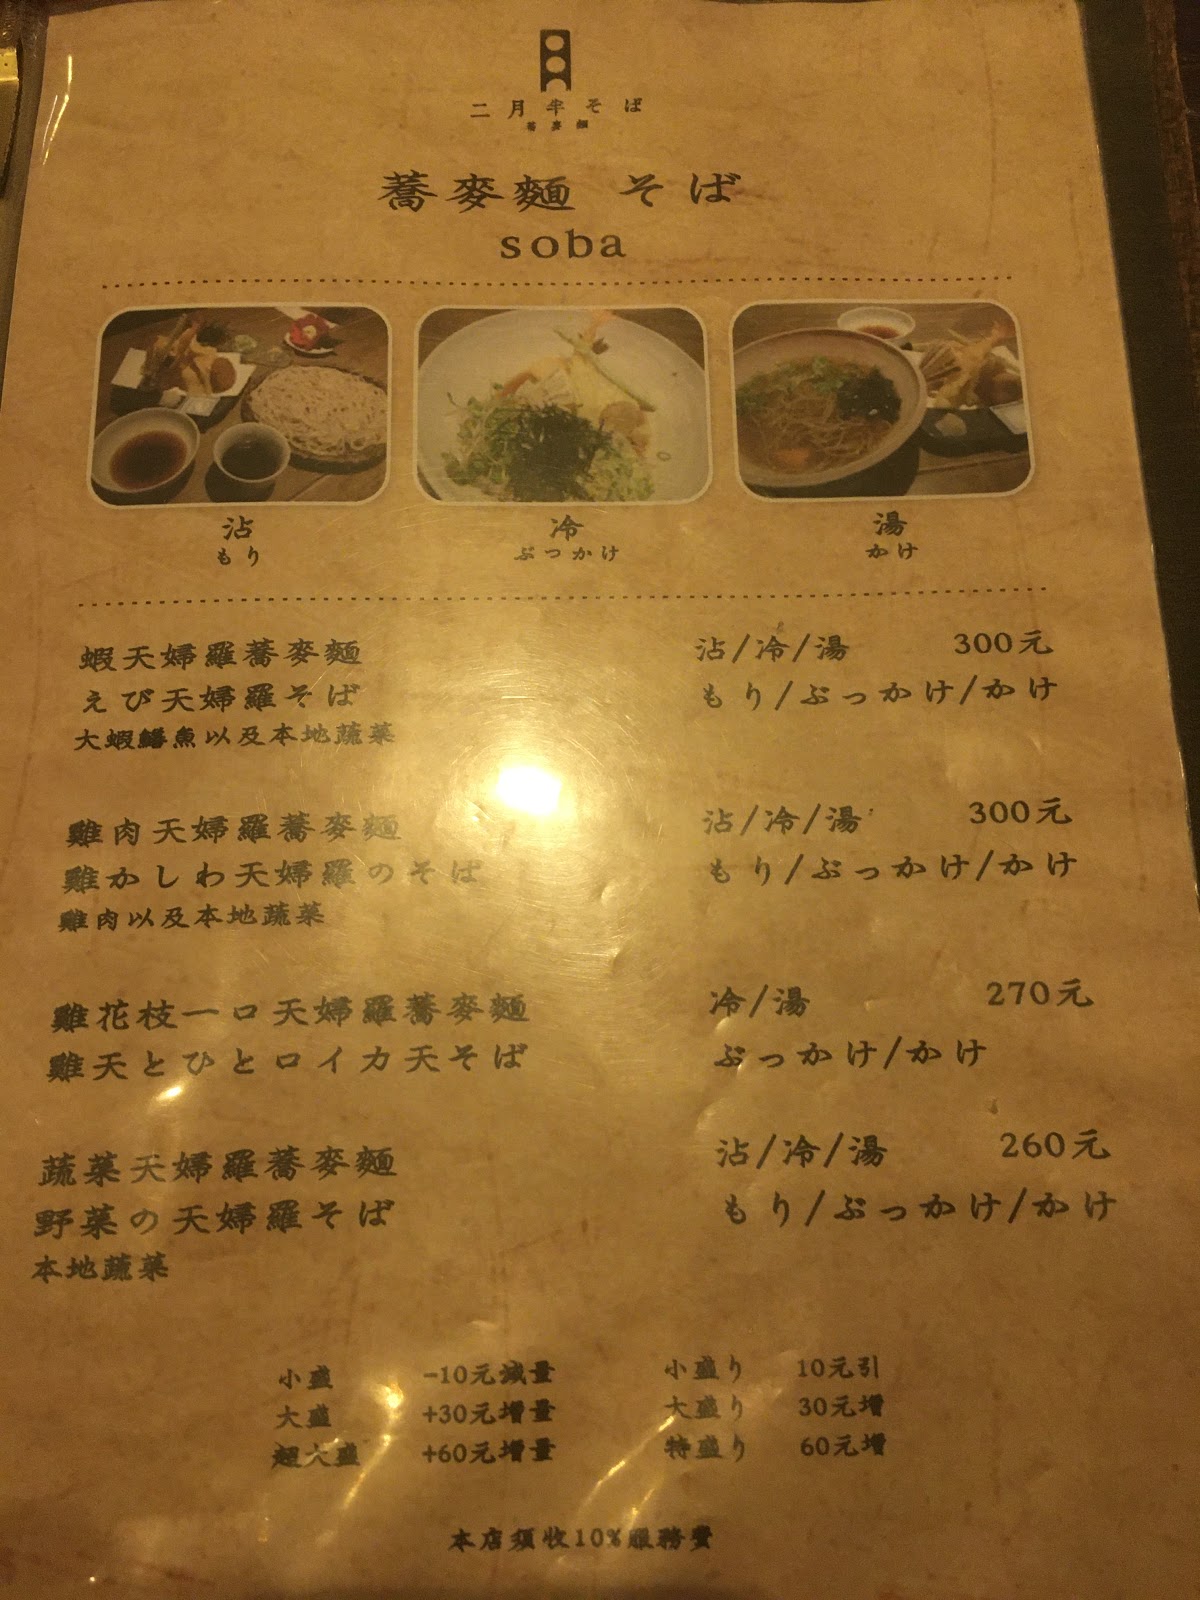 二月半そば
蕎麥麵
蕎麥麵 そば
soba
沾 冷 湯
もり ぶっかけ かけ
蝦天婦羅蕎麥麵 沾/冷/湯 300元
えび天婦羅そば もり/ぶっかけ/かけ
大蝦鱚魚以及本地蔬菜
雞肉天婦羅蕎麥麵 沾/冷/湯 300元
雞かしわ天婦羅のそば もり/ぶっかけ/かけ
雞肉以及本地蔬菜
雞花枝一口天婦羅蕎麥麵 冷/湯 270元
雞天とひと口イカ天そば ぶっかけ/かけ
蔬菜天婦羅蕎麥麵 沾/冷/湯 260元
野菜の天婦羅そば もり/ぶっかけ/かけ
本地蔬菜
小盛 -10元減量 小盛り 10元引
大盛 +30元增量 大盛り 30元增
超大盛 +60元增量 特盛り 60元增
本店須收10%服務費